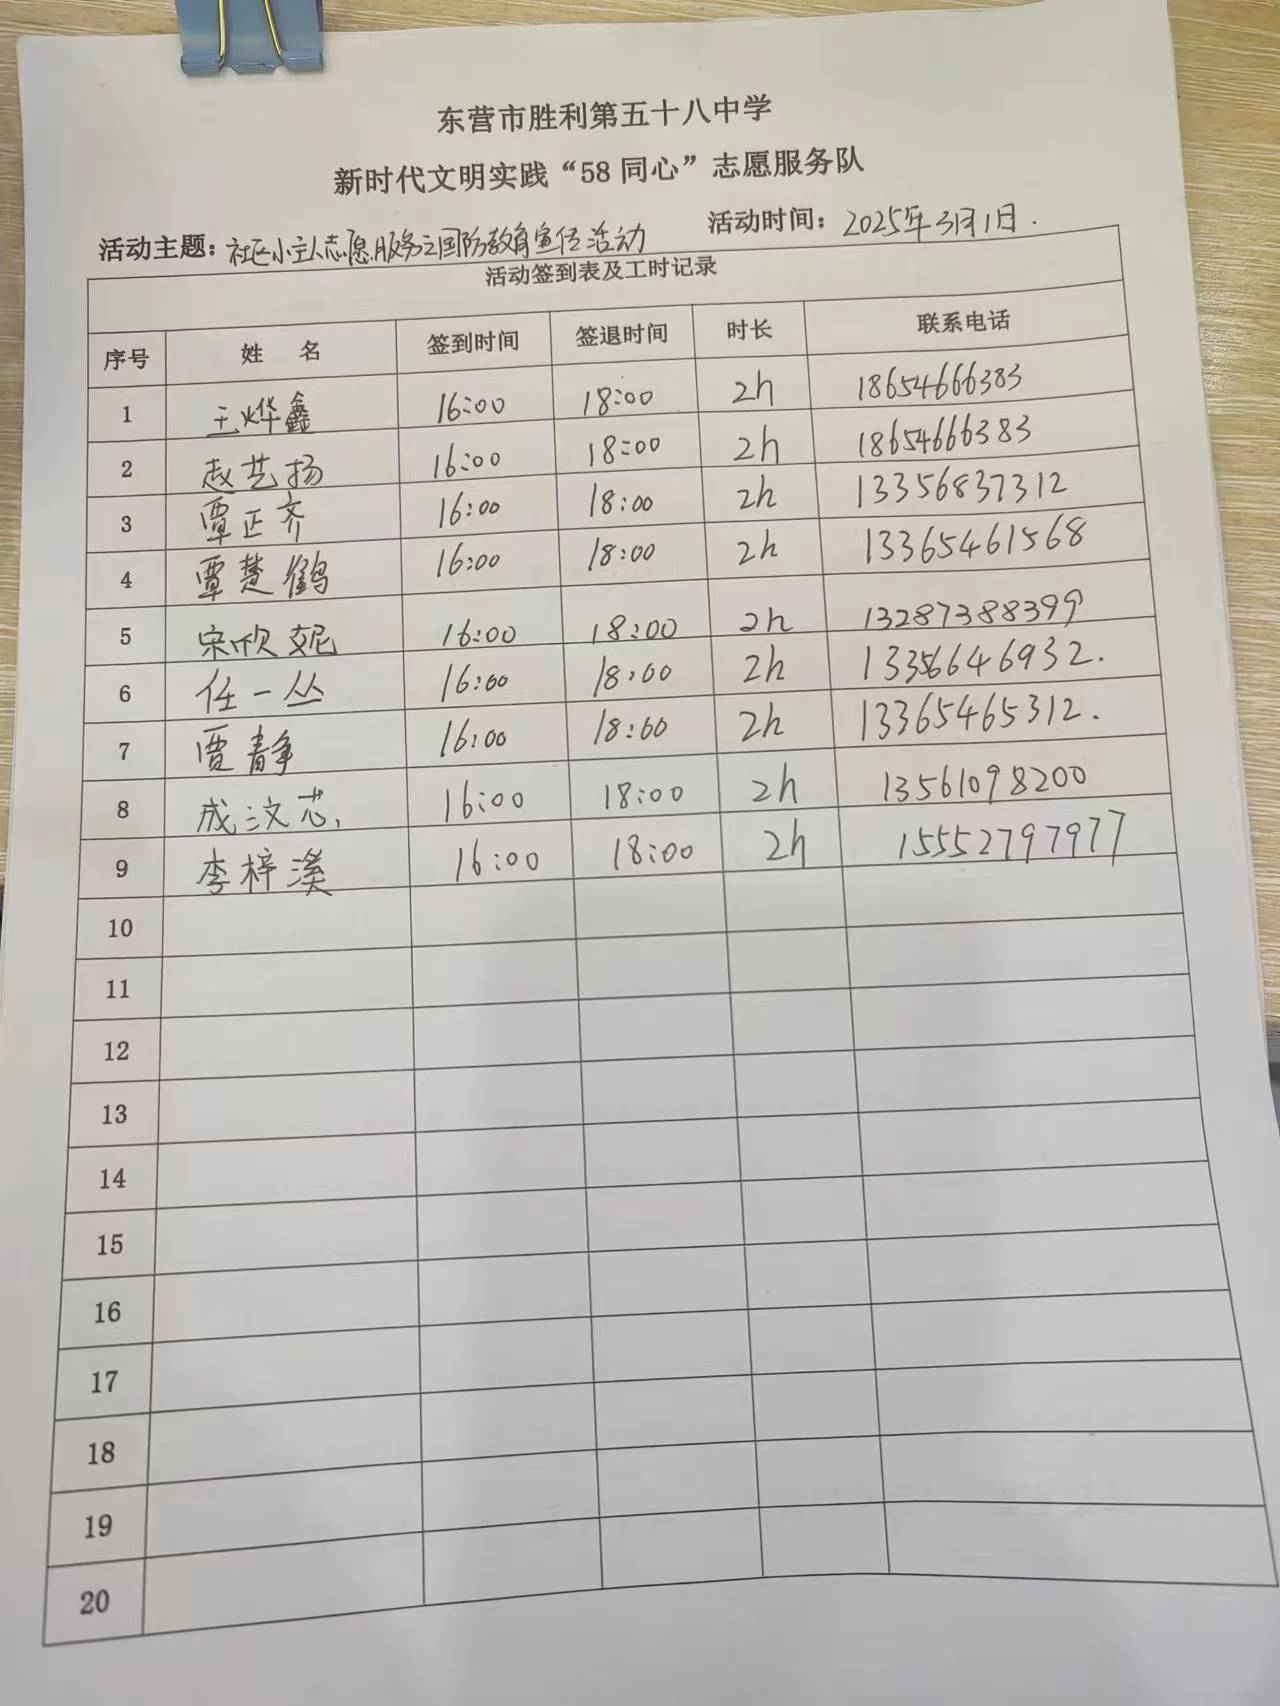 东营市胜利第五十八中学
新时代文明实践“58 同心”志愿服务队
活动主题：社区小主人志愿服务之国防教育宣传活动 活动时间：2025年3月1日.
活动签到表及工时记录
序号 姓 名 签到时间 签退时间 时长 联系电话
1 王烨鑫 16:00 18:00 2h 18654666383
2 赵艺扬 16:00 18:00 2h 18654666383
3 覃正齐 16:00 18:00 2h 13356837312
4 覃楚鹤 16:00 18:00 2h 13365461568
5 宋欣妮 16:00 18:00 2h 13287388399
6 任一丛 16:00 18:00 2h 13356646932.
7 贾静 16:00 18:00 2h 13365465312.
8 成汶芯 16:00 18:00 2h 13561098200
9 李梓溪 16:00 18:00 2h 15552797977
10
11
12
13
14
15
16
17
18
19
20